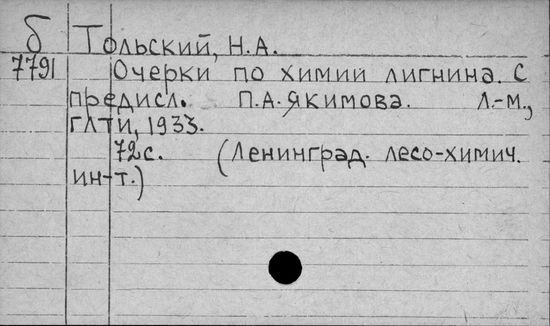 б Тольский, Н.А.
7791 Очерки по химии лигнина. С
предисл. П.А. Якимова. Л.-М.,
ГЛТИ, 1933.
72 с. (Ленинград. лесо-химич.
ин-т.)